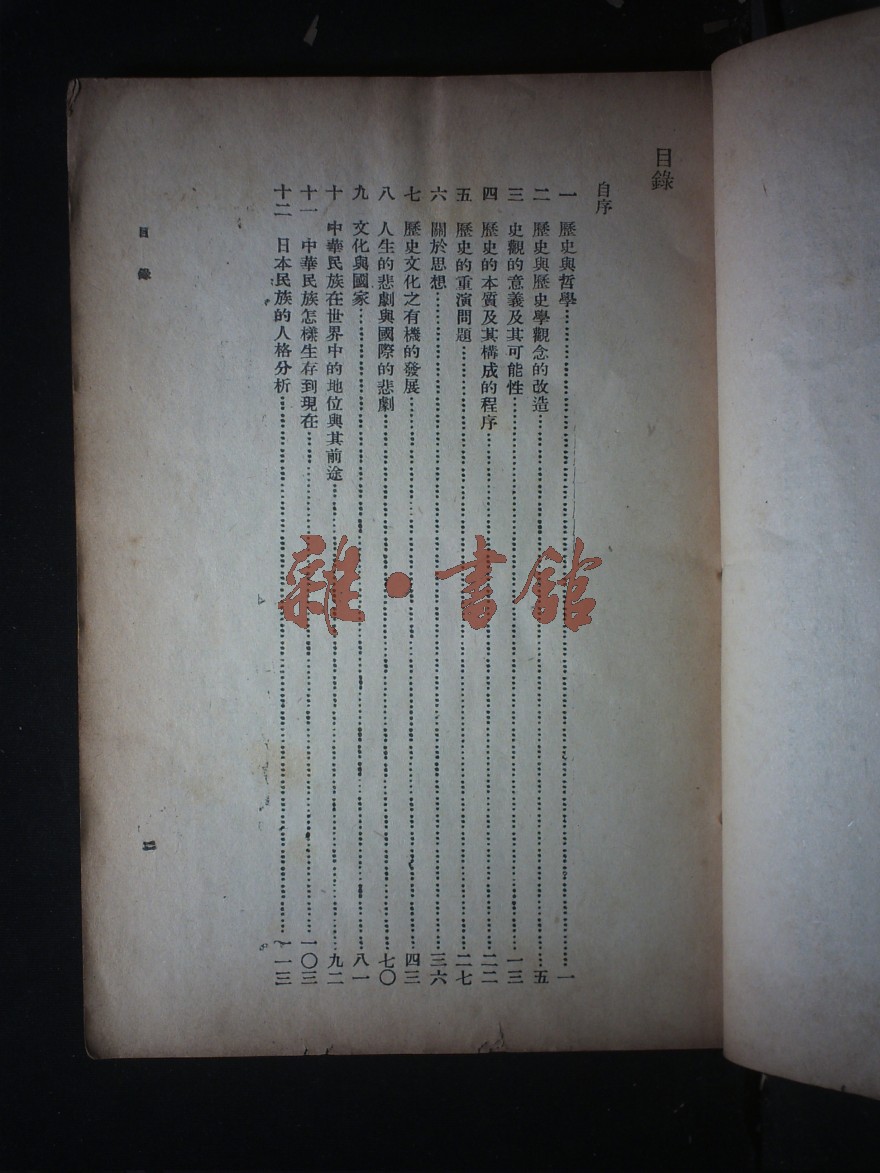 目錄
自序
一　歷史與哲學……一
二　歷史與歷史學觀念的改造……五
三　史觀的意義及其可能性……一三
四　歷史的本質及其構成的程序……二二
五　歷史的重演問題……二七
六　關於思想……三六
七　歷史文化之有機的發展……四三
八　人生的悲劇與國際的悲劇……七〇
九　文化與國家……八一
十　中華民族在世界中的地位與其前途……九二
十一　中華民族怎樣生存到現在……一〇三
十二　日本民族的人格分析……一一三
目錄
雜·書館